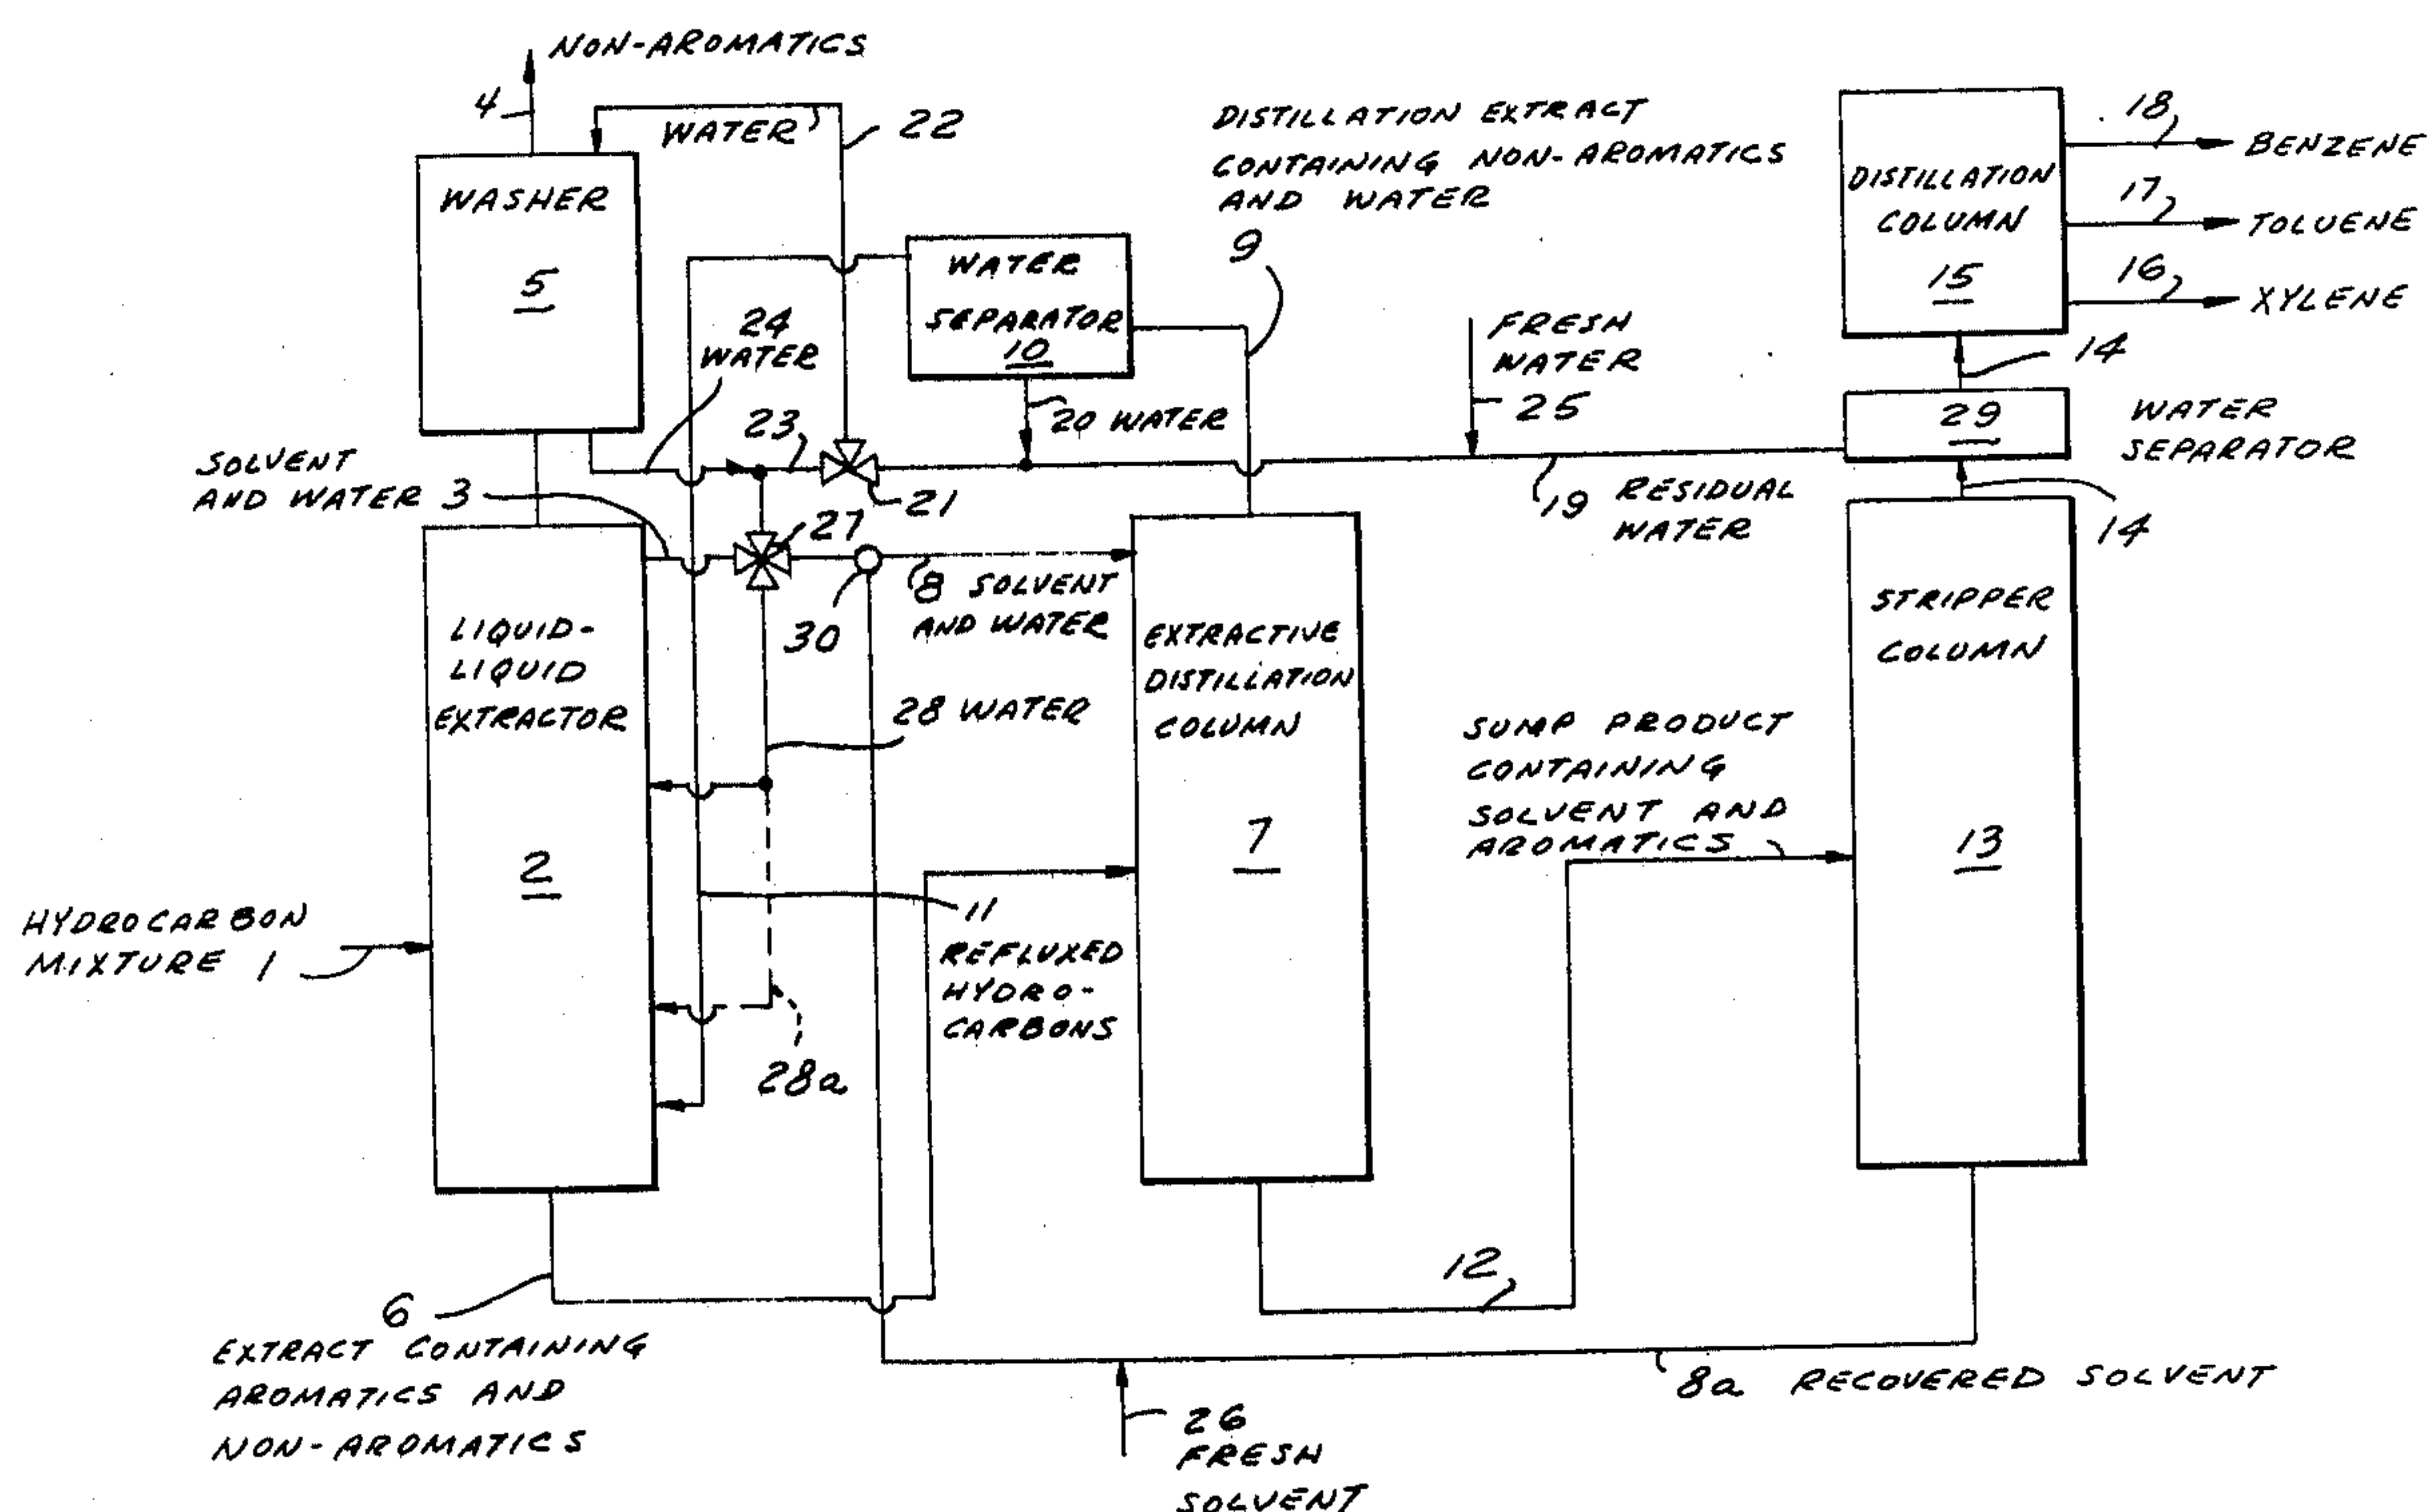 NON-AROMATICS
4
WATER
22
WASHER
5
DISTILLATION EXTRACT
CONTAINING NON-AROMATICS
AND WATER
9
WATER
SEPARATOR
10
DISTILLATION
COLUMN
15
18
BENZENE
17
TOLUENE
16
XYLENE
14
24
WATER
23
21
20 WATER
FRESH
WATER
25
29
WATER
SEPARATOR
19 RESIDUAL
WATER
14
SOLVENT
AND WATER 3
27
30
8 SOLVENT
AND WATER
LIQUID-
LIQUID
EXTRACTOR
2
28 WATER
EXTRACTIVE
DISTILLATION
COLUMN
7
STRIPPER
COLUMN
13
SUMP PRODUCT
CONTAINING
SOLVENT AND
AROMATICS
HYDROCARBON
MIXTURE 1
11
REFLUXED
HYDRO-
CARBONS
28a
12
6
EXTRACT CONTAINING
AROMATICS AND
NON-AROMATICS
8a RECOVERED SOLVENT
26
FRESH
SOLVENT